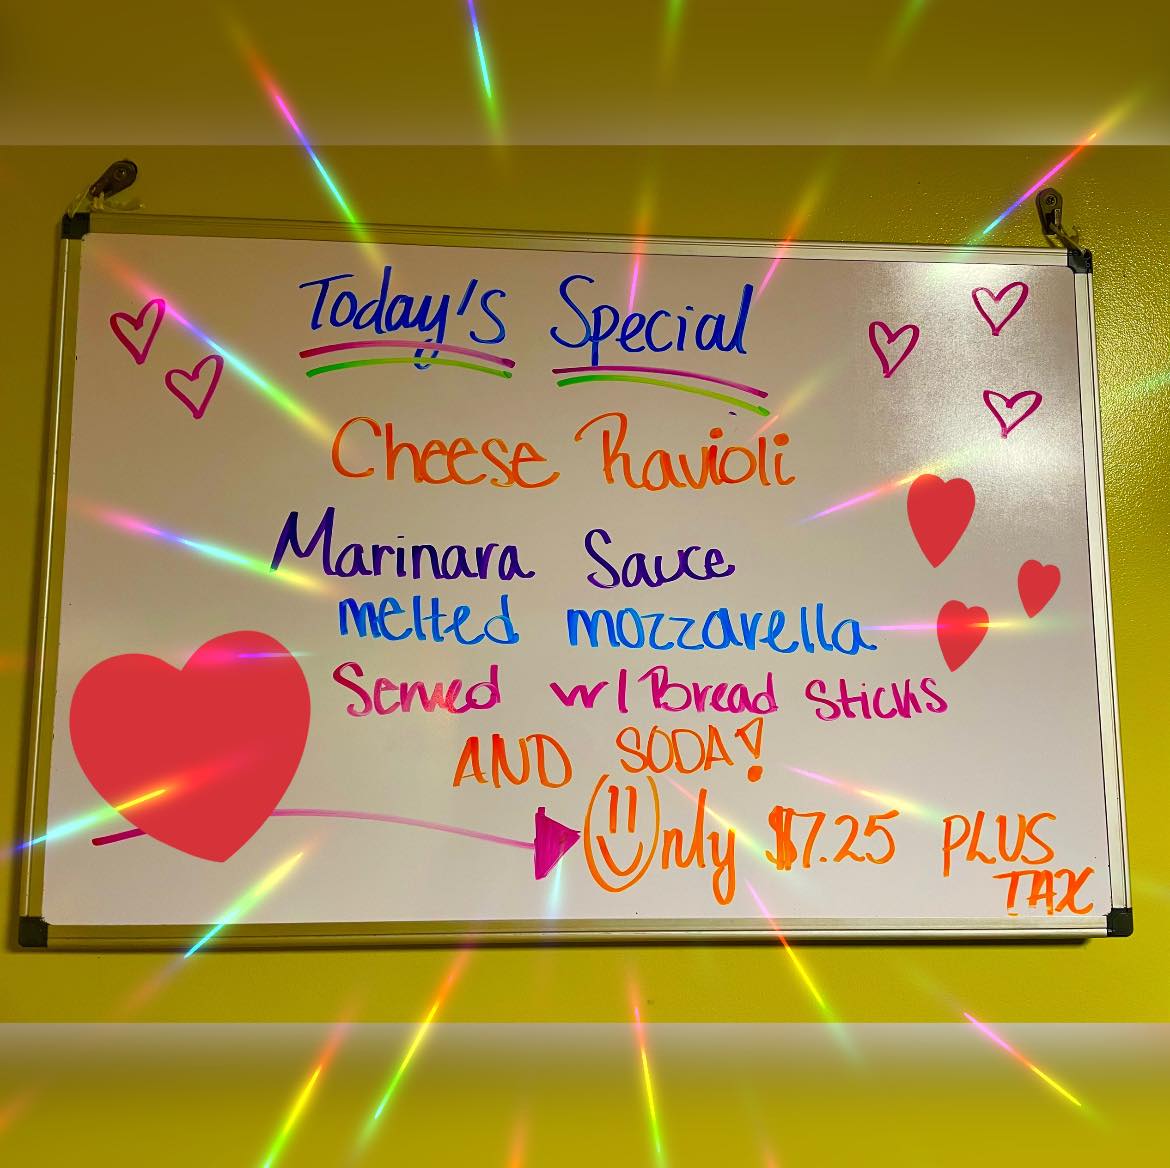 Today's Special
Cheese Ravioli
Marinara Sauce
melted mozzarella
Served w/ Bread Sticks
AND SODA!
Only $7.25 PLUS
TAX